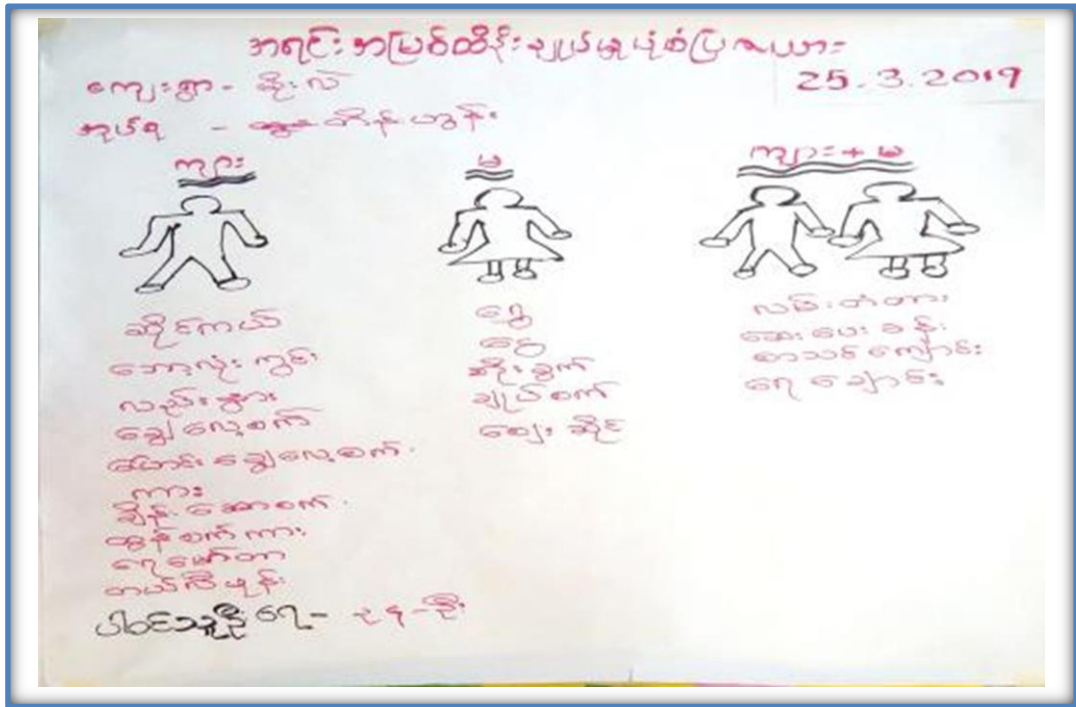 အရင်းအမြစ်ထိန်းချုပ်မှုပုံစံပြဇယား
25.3.2019
ကျေးရွာ - ဆိုးလဲ
အုပ်စု -
ကျား
မ
ကျား+မ
ဆိုင်ကယ်
ဘောလုံးကွင်း
လှည်းနွား
ခြွေလှေ့စက်
ပြောင်းခြွေလှေ့စက်
ကားချိန်းဆောစက်
ထွန်စက်ကား
ရေမော်တာ
တယ်လီဖုန်း
ရွှေ
ငွေ
အိုးခွက်
ချုပ်စက်
ဈေးဆိုင်
လမ်းတံတား
ဆေးပေးခန်း
စာသင်ကျောင်း
ရေချောင်း
ပါဝင်သူဦးရေ - ၃၄-ဦး